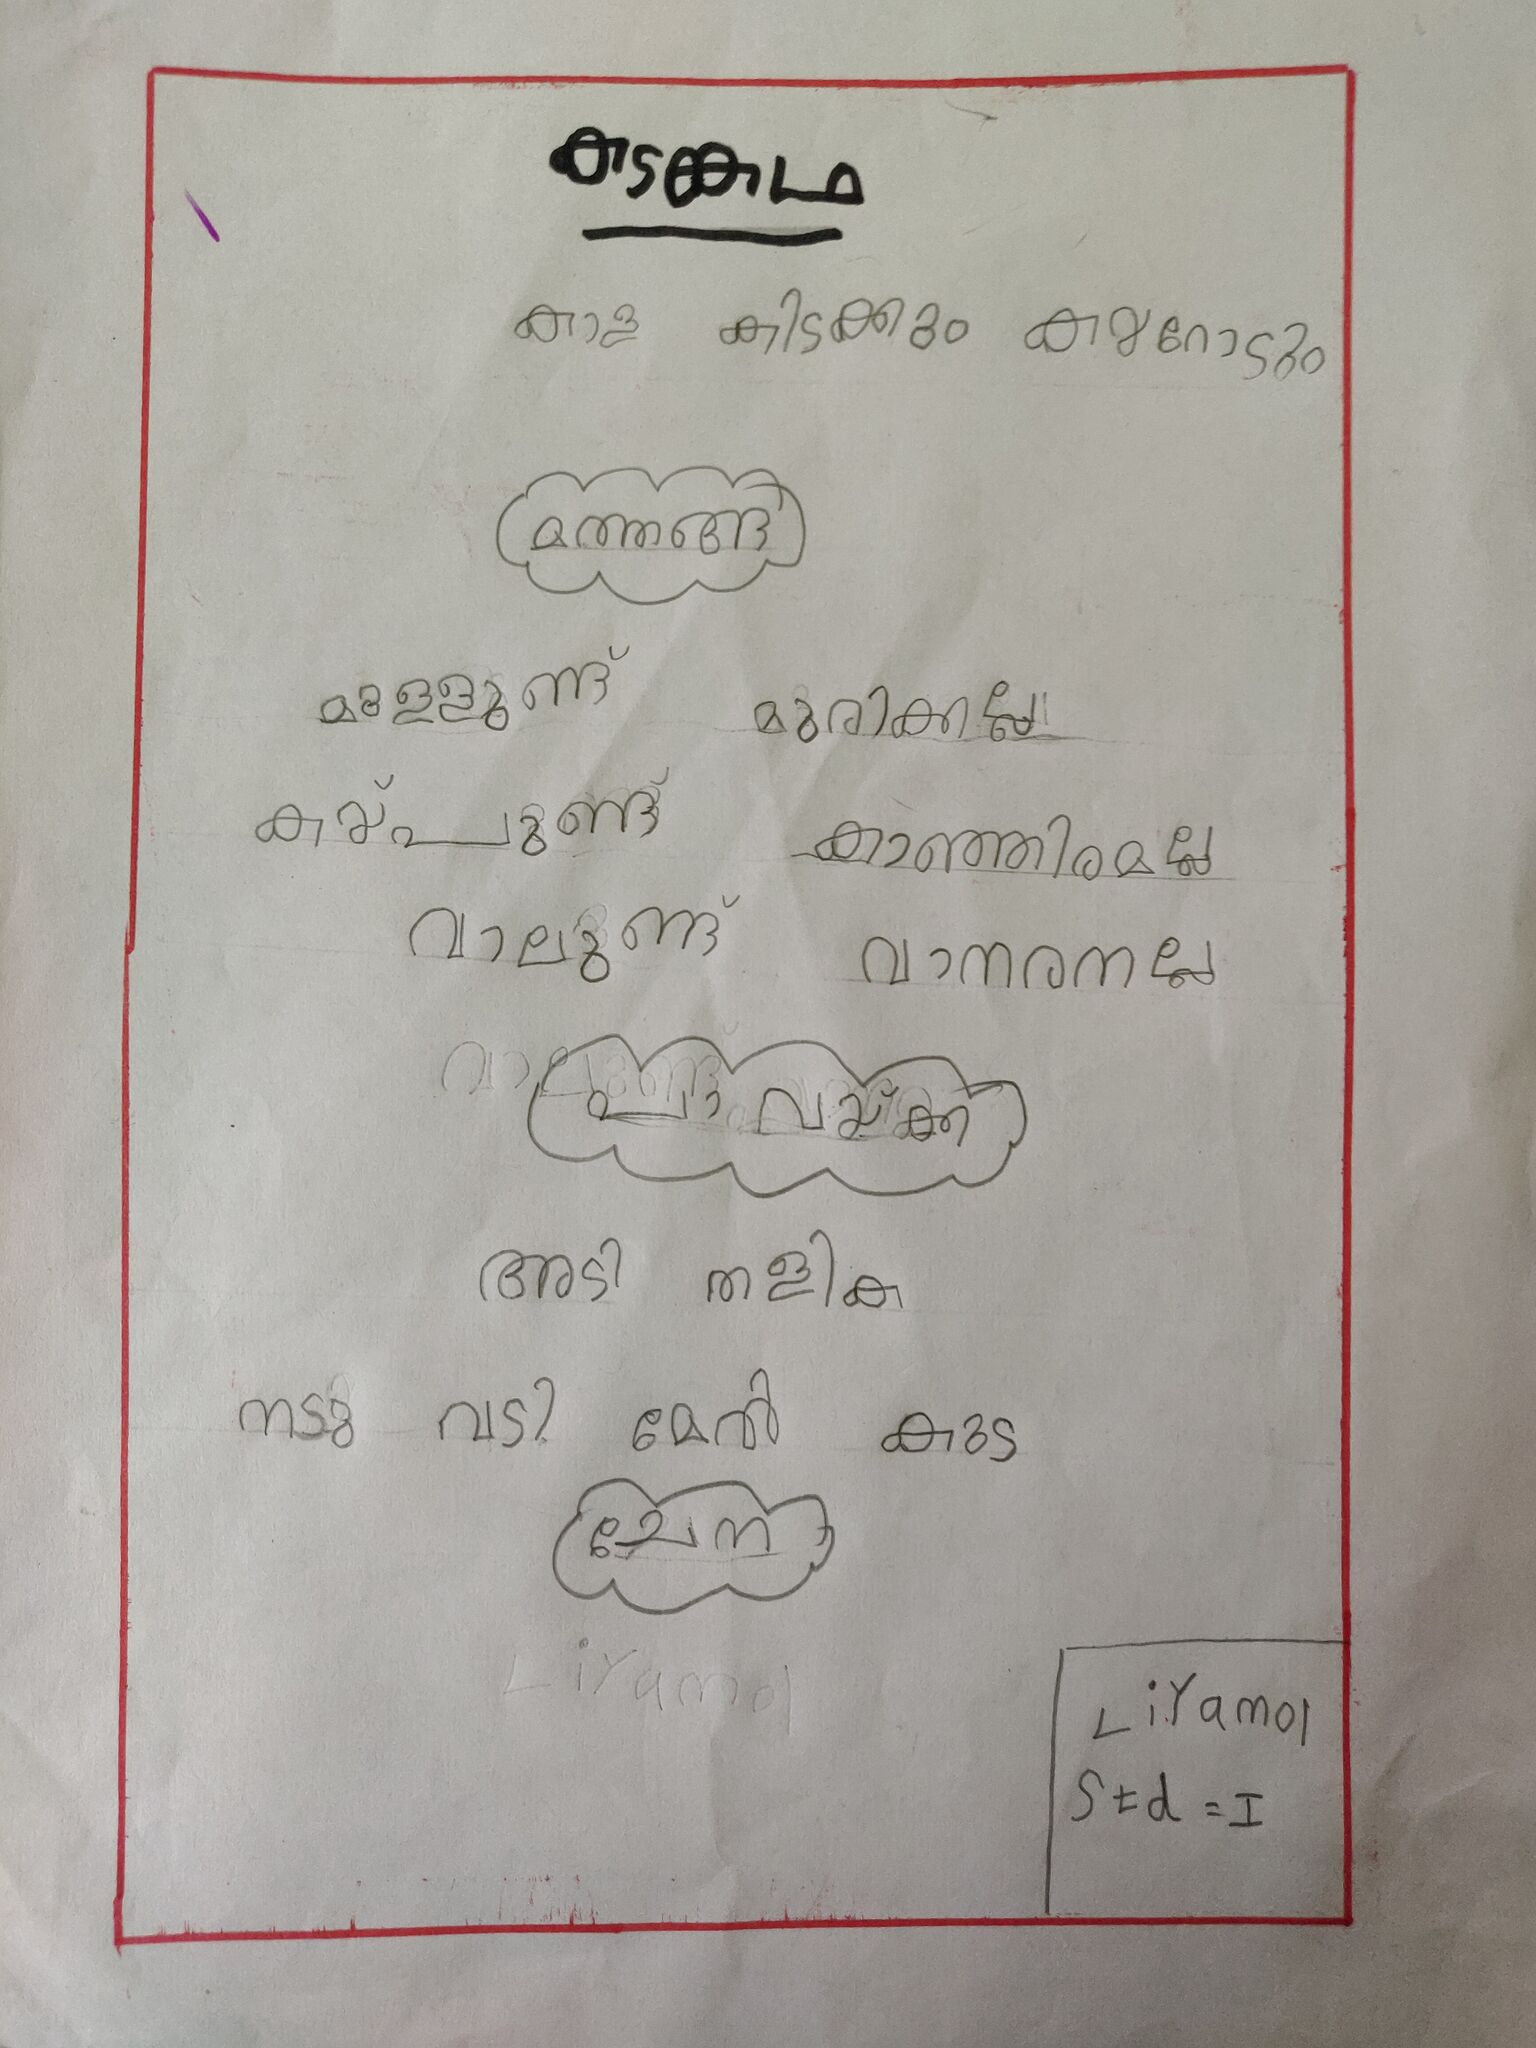 കടങ്കഥ
കാള കിടക്കും കയറോടും
മത്തങ്ങ
മുള്ളുണ്ട് മുരിക്കല്ല
കയ്പ്പുണ്ട് കാഞ്ഞിരമല്ല
വാലുണ്ട് വാനരനല്ല
പാവയ്ക്ക
അടി തളിക
നടു വടി മേൽ കുട
ചേന
Liyamol
Liyamol
Std = I